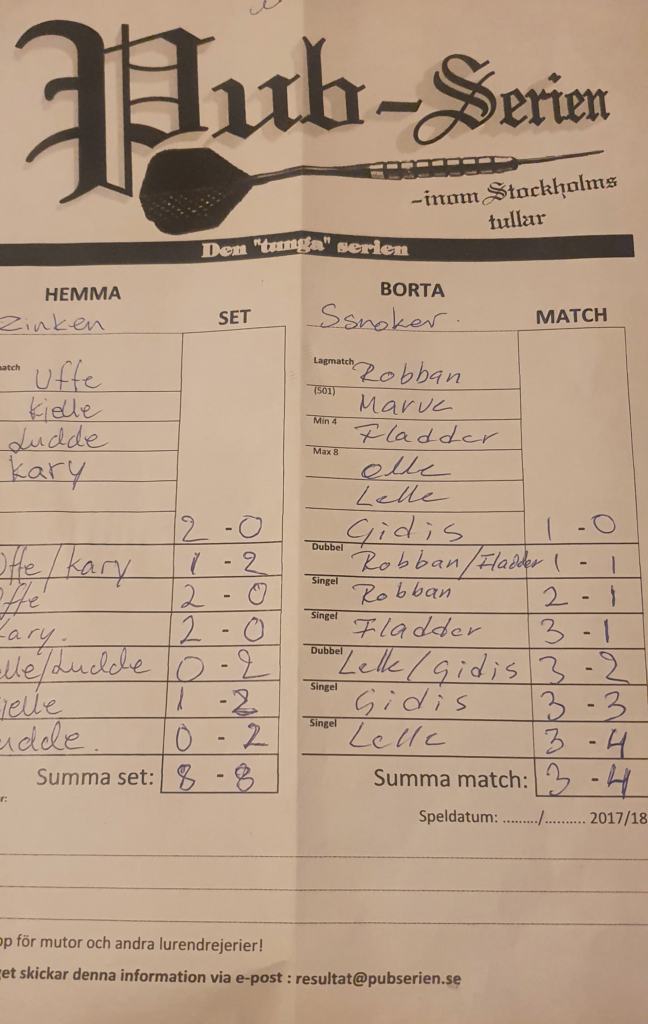 Pub-Serien
-inom Stockholms
tullar
Den "tunga" serien
HEMMA SET BORTA MATCH
Zinken Ssnoker.
atch Uffe Lagmatch Robban
Kjelle (501) Marve
Ludde Min 4 Fladder
Kary Max 8 Olle
Lelle
2 - 0 Gidis 1 - 0
Uffe/Kary 1 - 2 Dubbel Robban/Fladder 1 - 1
ffe 2 - 0 Singel Robban 2 - 1
Kary. 2 - 0 Singel Fladder 3 - 1
elle/Ludde 0 - 2 Dubbel Lelle/Gidis 3 - 2
jelle 1 - 2 Singel Gidis 3 - 3
udde. 0 - 2 Singel Lelle 3 - 4
Summa set: 8 - 8 Summa match: 3 - 4
r: Speldatum: ......../.......... 2017/18
pp för mutor och andra lurendrejerier!
et skickar denna information via e-post : resultat@pubserien.se